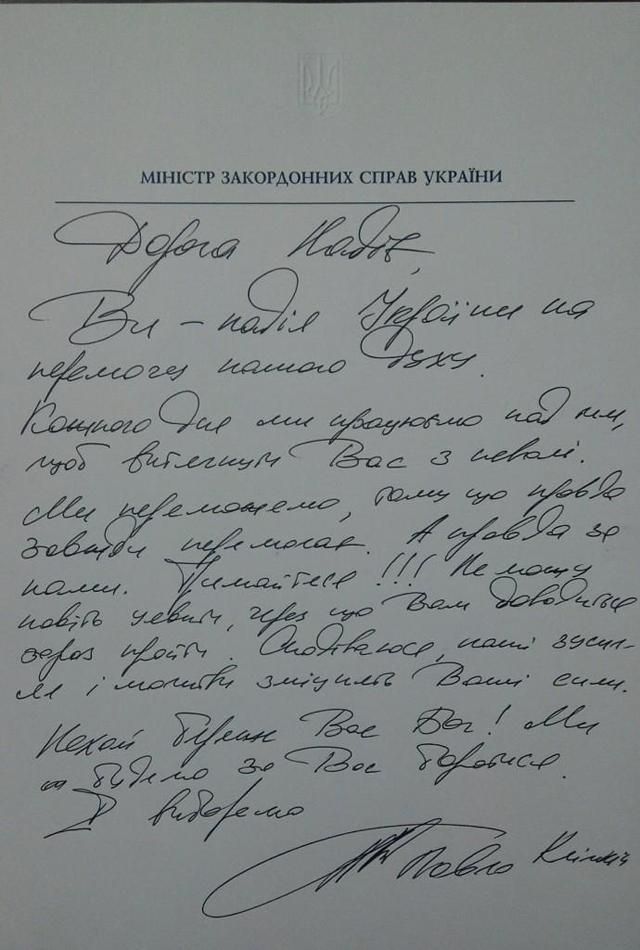 МІНІСТР ЗАКОРДОННИХ СПРАВ УКРАЇНИ
Дорога Надіє,
Ви – надія України на
перемогу нашого Духу.
Кожного дня ми працюємо над тим,
щоб витягнути Вас з неволі.
Ми переможемо, тому що правда
завжди перемагає. А правда за
нами. Тримайтеся!!! Не можу
навіть уявити, через що Вам доводиться
зараз пройти. Сподіваюся, наші зусил-
ля і молитви зміцнять Ваші сили.
Нехай береже Вас Бог! Ми
будемо за Вас боротися.
І виборемо
Павло Клімкін